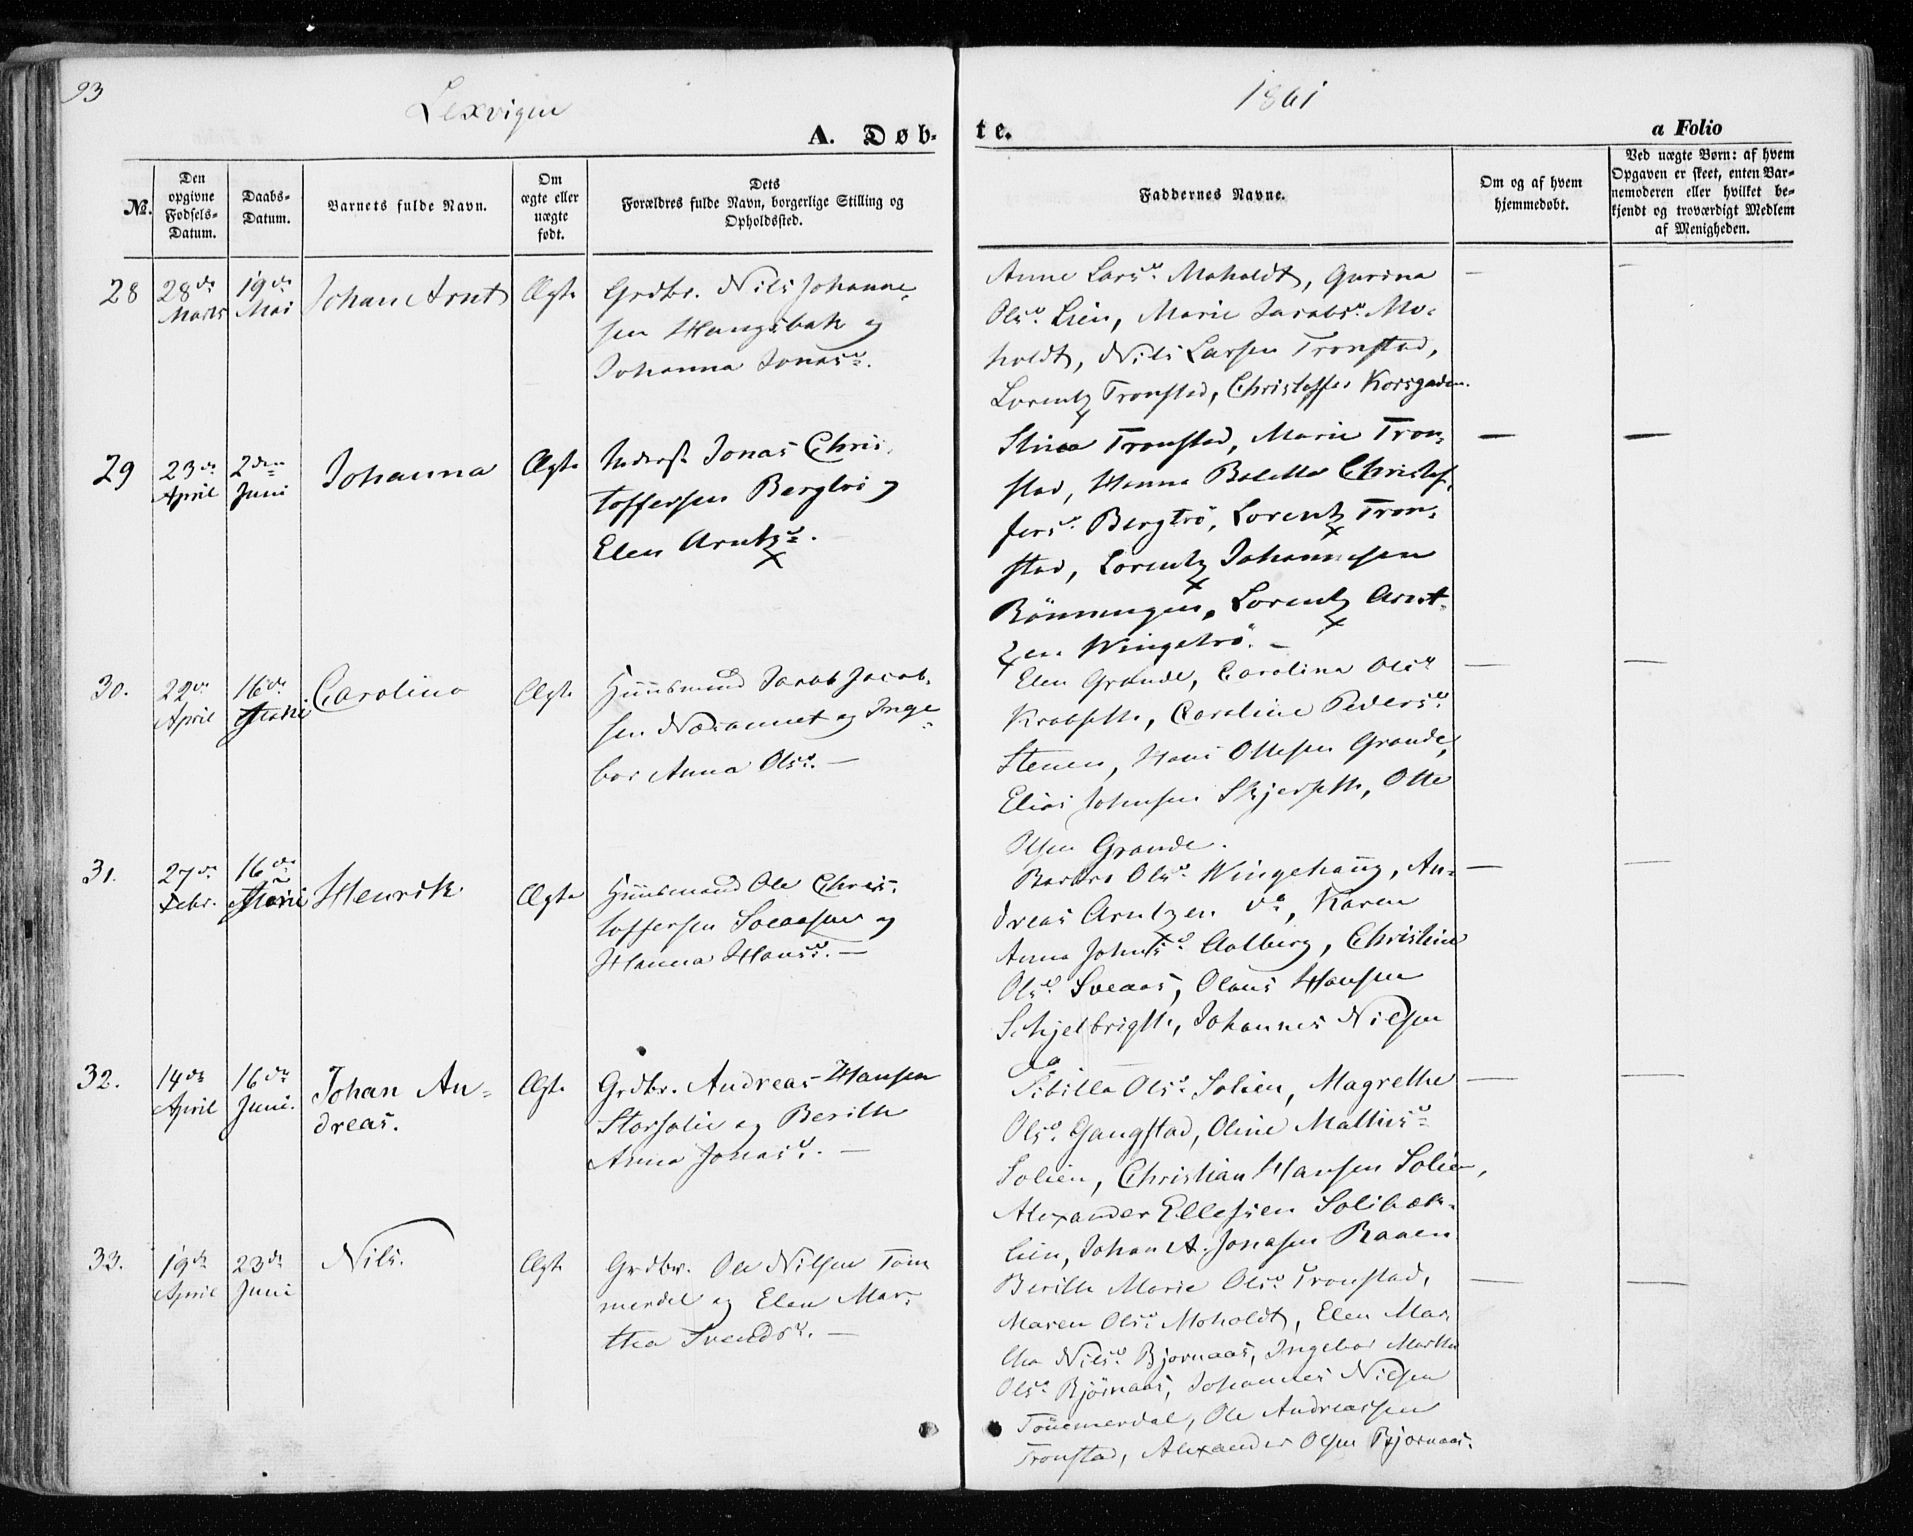 93
Lexvigen
1861
A. Døb-
te.
a Folio
No.
Den opgivne Fødsels-Datum.
Daabs-Datum.
Barnets fulde Navn.
Om ægte eller uægte født.
Dets Forældres fulde Navn, borgerlige Stilling og Opholdssted.
Faddernes Navne.
Om og af hvem hjemmedøbt.
Ved uægte Børn: af hvem Opgaven er skeet, enten Barnemoderen eller hvilket bekjendt og troværdigt Medlem af Menigheden.
28 28de Marts 19de Mai Johan Arnt Ægte
Grdbr. Nils Johanne-
sen Hangsbak og
Johanna Jonasd.
Anne Larsd. Moholdt, Gurina
Olsd. Lien, Marie Jacobsd. Mo-
holdt, Nils Larsen Tronstad,
Lorentz Tronstad, Christoffer Korsgaden.
29 23de April 2den Juni Johanna Ægte
Inderst Jonas Chris-
toffersen Bergtrø og
Elen Arntzd.
Stina Tronstad, Marie Tron-
stad, Hanna Bolette Christof-
fersd. Bergtrø, Lorentz Tron-
stad, Lorentz Johannesen
Rønningen, Lorentz Arnt-
zen Wingetrø. —
30. 22de April 16de Juni Carolina Ægte
Huusmand Jacob Jacob-
sen Næsannet og Inge-
bor Anna Olsd. —
Elen Grande, Carolina Olsd.
Krabsetth, Caroline Pedersd.
Stenen, Hans Ottesen Grande,
Elias Johnsen Skjersetth, Otte
Olsen Grande.
31. 27de Febr. 16de Juni Henrik Ægte
Huusmand Ole Chris-
toffersen Sveaasen og
Hanna Hansd. —
Barbro Olsd. Wingehaug, An-
dreas Arntzen do, Karen
Anna Johnsd. Aalberg, Christine
Olsd. Sveaas, Olaus Hansen
Schjelbrigtt, Johannes Nilsen
do
32. 14de April 16de Juni. Johan An-
dreas. Ægte
Grdbr. Andreas Hansen
Storsolie og Berith
Anna Jonasd. —
Sibilla Olsd. Solien, Magrethe
Olsd. Gangstad, Oline Mathisd.
Solien, Christian Hansen Solien,
Alexander Ellefsen Solibæk-
lien, Johan A. Jonasen Raaen
33. 19de April 23de Juni Nils. Ægte
Grdbr. Ole Nilsen Tøm
merdel og Elen Mar-
tha Svendsd. —
Berith Marie Olsd. Tronstad,
Maren Olsd. Moholdt, Elen Mar-
tha Nilsd. Bjørnaas, Ingebor Martha
Olsd. Bjørnaas, Johannes Nilsen
Tømmerdal, Ole Andreassen
Tronstad, Alexander Olsen Bjørnaas.